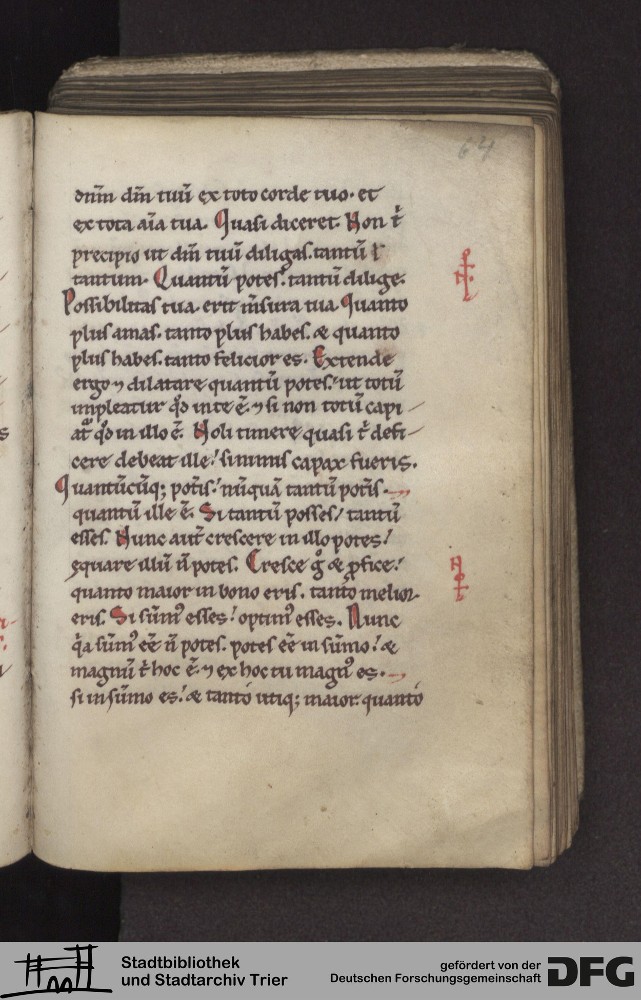 64
dnm̄ dm̄ tuū ex toto corde tuo. et
ex tota aīa tua. Quasi diceret. Non t̄
precipio ut dm̄ tuū diligas. tantū ł
tantum. Quantū potes. tantū dilige.
Possibilitas tua. erit m̄sura tua. Quanto
plus amas. tanto plus habes. & quanto
plus habes. tanto felicior es. Extende
ergo ⁊ dilatare quantū potes. ut totū
impleatur qd̄ in te ē. ⁊ si non totū capi
at qd̄ in illo ē. Noli timere quasi t̄ defi
cere debeat ille. si nimis capax fueris.
Quantūcūq; potis. nūquā tantū potis.
quantū ille ē. Si tantū posses, tantū
esses. Nunc aut̄ crescere in illo potes.
equare illū n̄ potes. Cresce gͦ & ꝓfice.
quanto maior in bono eris. tanto melior
eris. Si sūm⁹ esses. optim⁹ esses. Nunc
q̇a sūm⁹ eē n̄ potes. potes eē in sūmo. &
magnū t̄ hoc ē. ⁊ ex hoc tu magn⁹ es.
si in sūmo es. & tanto utiq; maior. quanto
Stadtbibliothek
und Stadtarchiv Trier
gefördert von der
Deutschen Forschungsgemeinschaft
DFG